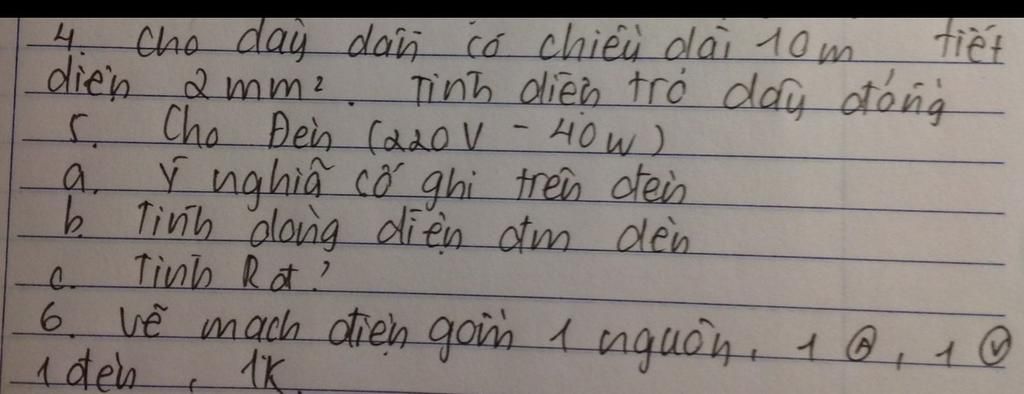 4. Cho dây dẫn có chiều dài 10m tiết
diện 2mm². Tính điện trở dây đồng
5. Cho Đèn (220V - 40W)
a. Ý nghĩa số ghi trên đèn
b. Tính dòng điện đm đèn
c. Tính Rđ?
6. Vẽ mạch điện gồm 1 nguồn, 1 Ⓐ, 1 Ⓥ
1 đèn, 1K